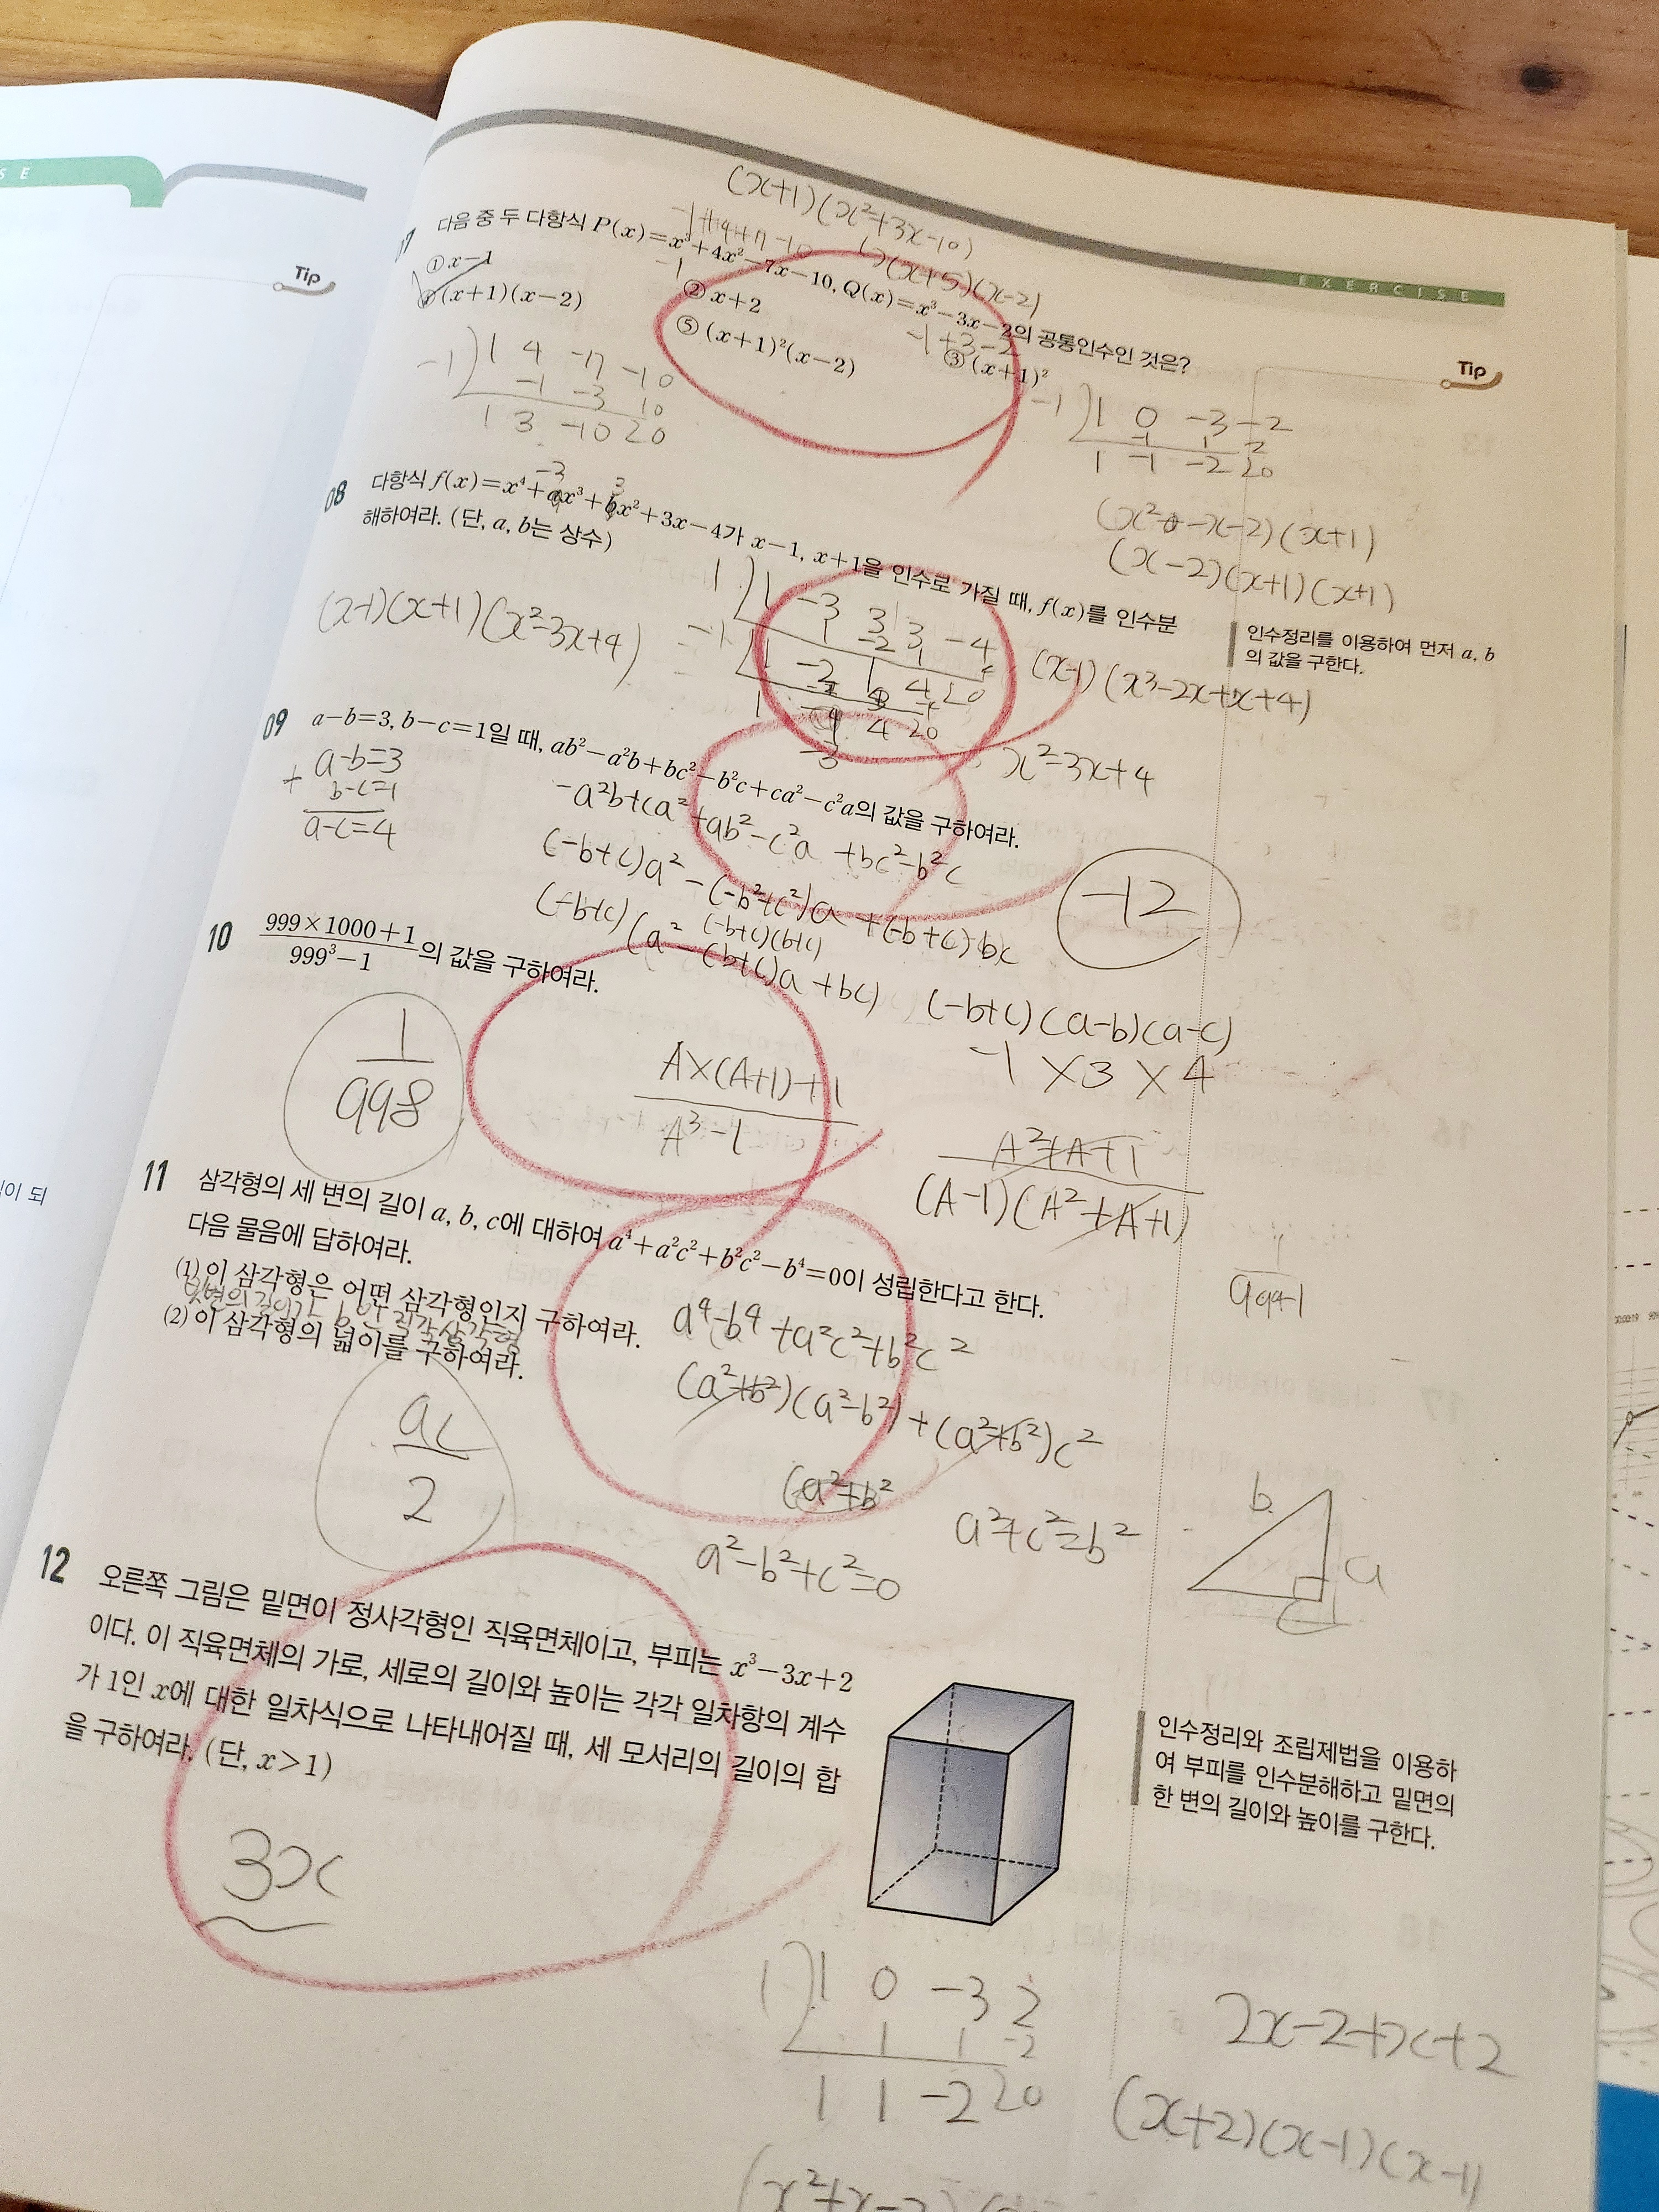 S E
Tip
이 되
EXERCISE
(x+1)(x²+3x-10)
(x+5)(x-2)
다음 중 두 다항식 P(x)=x³+4x²-7x-10, Q(x)=x³-3x-2의 공통인수인 것은?
① x-1
② x+2
③ (x+1)²
(x+1)(x-2)
⑤ (x+1)²(x-2)
-1+3-2
Tip
-1) 1 4 -7 -10
-1 -3 10
1 3 -10 0
-1) 1 0 -3 -2
-1 1 2
1 -1 -2 0
(x²-x-2)(x+1)
(x-2)(x+1)(x+1)
08 다항식 f(x)=x⁴+ax³+bx²+3x-4가 x-1, x+1을 인수로 가질 때, f(x)를 인수분
해하여라. (단, a, b는 상수)
-3 3
인수정리를 이용하여 먼저 a, b
의 값을 구한다.
(x-1)(x+1)(x²-3x+4)
1) 1 -3 3 3 -4
1 -2 1 4
-1) 1 -2 1 4 0
1 -3 4 0
x²-3x+4
09 a-b=3, b-c=1일 때, ab²-a²b+bc²-b²c+ca²-c²a의 값을 구하여라.
a-b=3
+ b-c=1
a-c=4
-a²b+ca²+ab²-c²a+bc²-b²c
(-b+c)a²-(-b²+c²)a+(-b+c)bc
(-b+c)(b+c)
(-b+c)(a²-(b+c)a+bc)
(-b+c)(a-b)(a-c)
-1×3×4
-12
10 999×1000+1 / 999³-1 의 값을 구하여라.
1/998
A×(A+1)+1 / A³-1
A²+A+1 / (A-1)(A²+A+1)
11 삼각형의 세 변의 길이 a, b, c에 대하여 a⁴+a²c²+b²c²-b⁴=0이 성립한다고 한다.
다음 물음에 답하여라.
(1) 이 삼각형은 어떤 삼각형인지 구하여라.
빗변의 길이가 b인 직각삼각형
(2) 이 삼각형의 넓이를 구하여라.
ac/2
a⁴-b⁴+a²c²+b²c²
(a²+b²)(a²-b²)+(a²+b²)c²
(a²+b²
a²-b²+c²=0
a²+c²=b²
b
a
c
12 오른쪽 그림은 밑면이 정사각형인 직육면체이고, 부피는 x³-3x+2
이다. 이 직육면체의 가로, 세로의 길이와 높이는 각각 일차항의 계수
가 1인 x에 대한 일차식으로 나타내어질 때, 세 모서리의 길이의 합
을 구하여라. (단, x>1)
인수정리와 조립제법을 이용하
여 부피를 인수분해하고 밑면의
한 변의 길이와 높이를 구한다.
3x
1) 1 0 -3 2
1 1 -2
1 1 -2 0
2x-2+x+2
(x+2)(x-1)(x-1)
(x²+x-2)